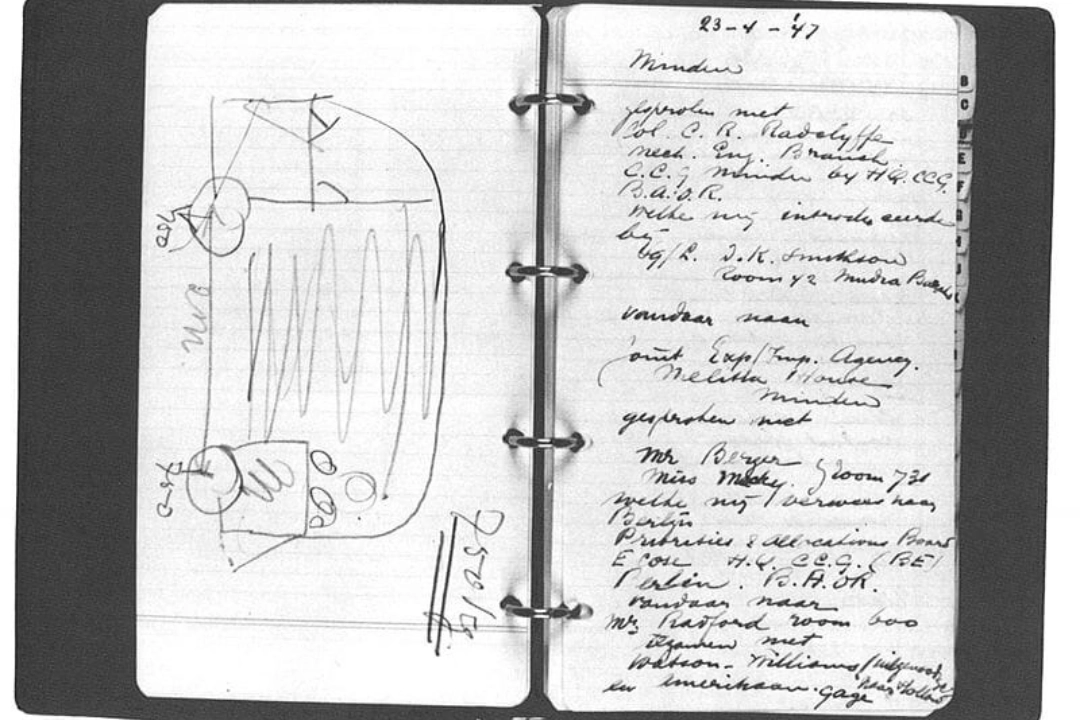 750
750
7500 kg
23-4-'47
Minden
gesproken met
Col. C. R. Radclyffe
mech. Eng. Branch
C.C.G. Minden by H.Q. CCG.
B.A.O.R.
welke mij introduceerde
bij
bg/L. J.K. Smithson
Room 42 Mudra
vandaar naar
Joint Exp/Imp. Agency.
Melitta House
Minden
gesproken met
Mr Berger } Room 731
Miss Macky
welke mij verwees naar
Berlijn
Priorities & Allocations Board
E Cose H.Q. C.C.G. (BE)
Berlin. B.A.O.R.
vandaar naar
Mr Radford room 600
tezamen met
Watson-Williams
naar Holland
en Amerikaan. Gage
B
C
D
E
F
G
H